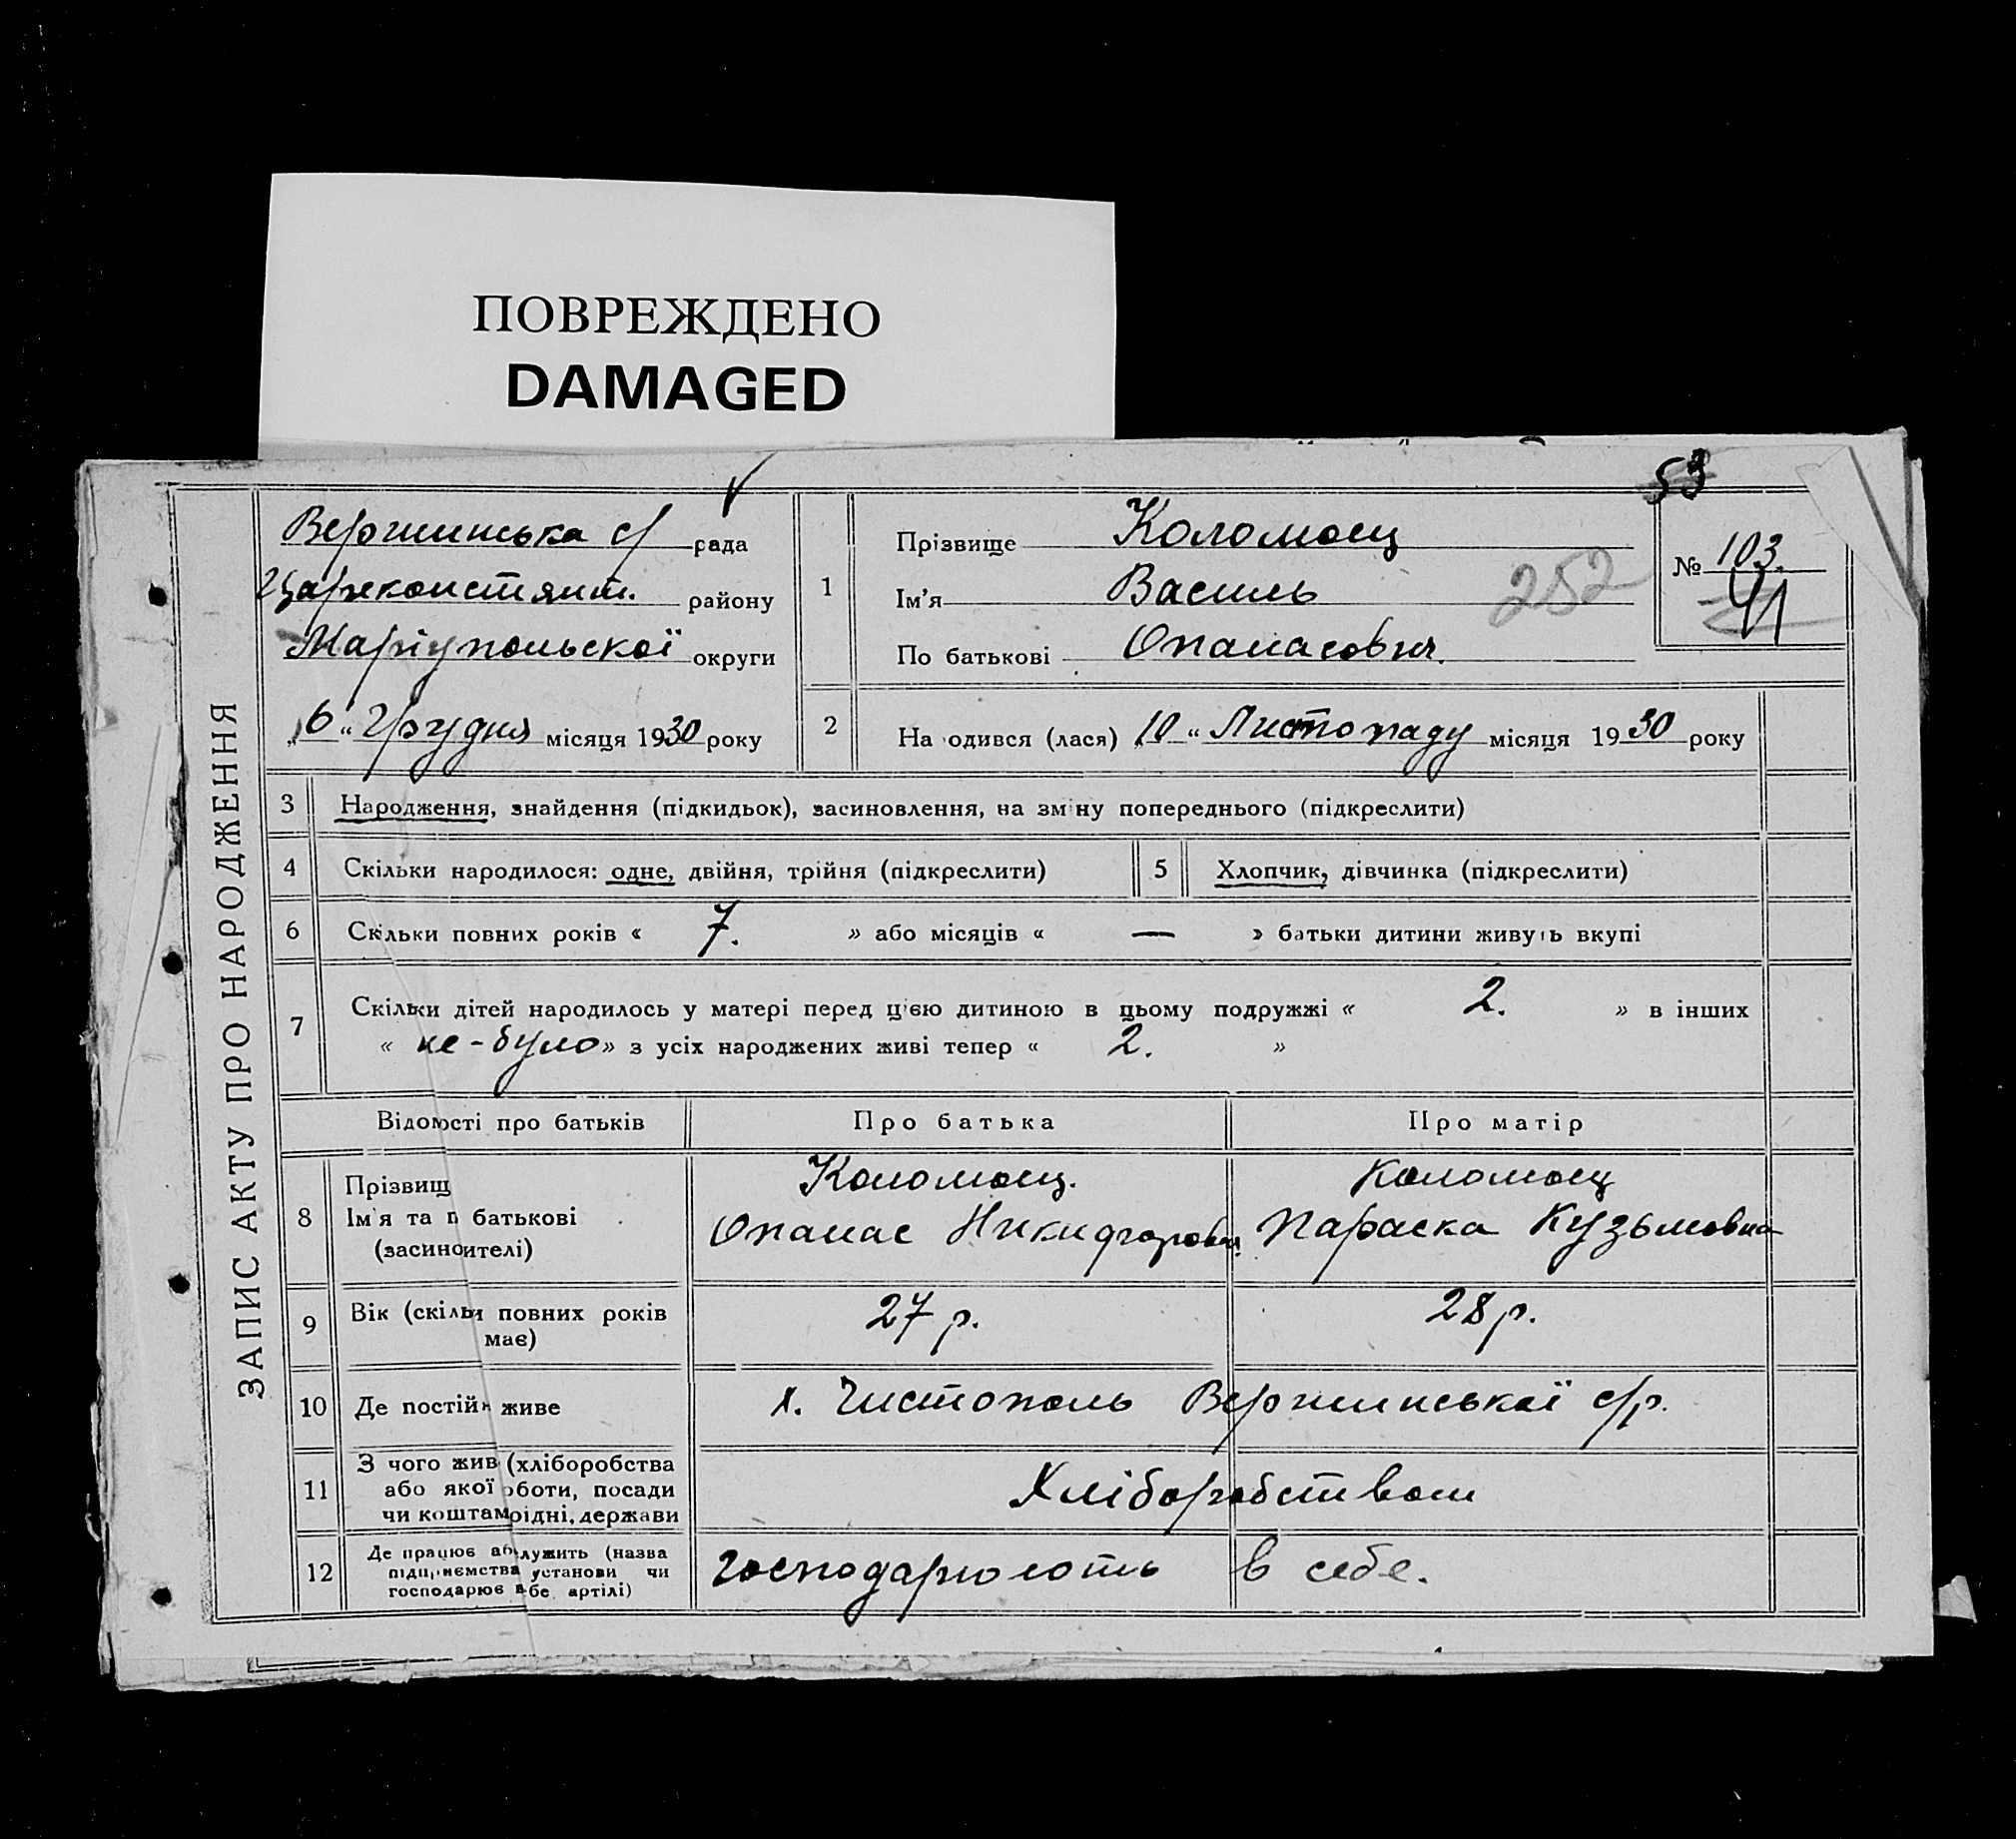 ПОВРЕЖДЕНО
DAMAGED
53
ЗАПИС АКТУ ПРО НАРОДЖЕННЯ
Вершинська с/ рада
Цареконстянт. району
Маріупольскої округи
„6“ Грудня місяця 1930 року
1
Прізвище Коломоец
Ім'я Василь
По батькові Опанасович.
252
№ 103.
41
2 На одився (лася) „10“ Листопаду місяця 1930 року
3 Народження, знайдення (підкидьок), засиновлення, на зміну попереднього (підкреслити)
4 Скільки народилося: одне, двійня, трійня (підкреслити) 5 Хлопчик, дівчинка (підкреслити)
6 Скільки повних років « 7. » або місяців « — » батьки дитини живуть вкупі
7 Скільки дітей народилось у матері перед цією дитиною в цьому подружжі « 2. » в інших
« не-було » з усіх народжених живі тепер « 2. »
Відомості про батьків Про батька Про матір
8 Прізвищ Коломоец. Коломоец
Ім'я та п батькові Опанас Никифорович. Параска Кузьмовна
(засиноителі)
9 Вік (скільки повних років має) 27 р. 28 р.
10 Де постійн живе х. Чистополь Вершинської с/р.
11 З чого жив (хліборобства
або якої оботи, посади
чи коштам рідні, держави
Хліборобством
12 Де працює аб лужить (назва
підприємства установи чи
господарює в бе артілі)
господарюють в себе.